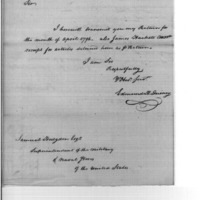 Sir,
I herewith transmit you my Return for
the month of April 1794. also James
receipt for articles delivered him as p Return.
I am Sir
Respectfully
Obed Servt
Samuel Hodgdon Esqr
Superintendent of the military
& Naval Stores
of the United States